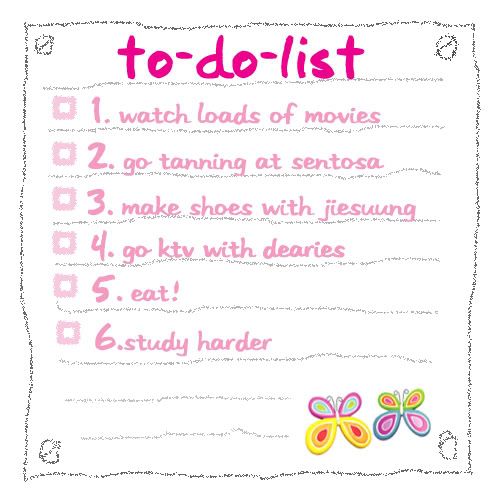 to-do-list
1. watch loads of movies
2. go tanning at sentosa
3. make shoes with jiesuung
4. go ktv with dearies
5. eat!
6.study harder